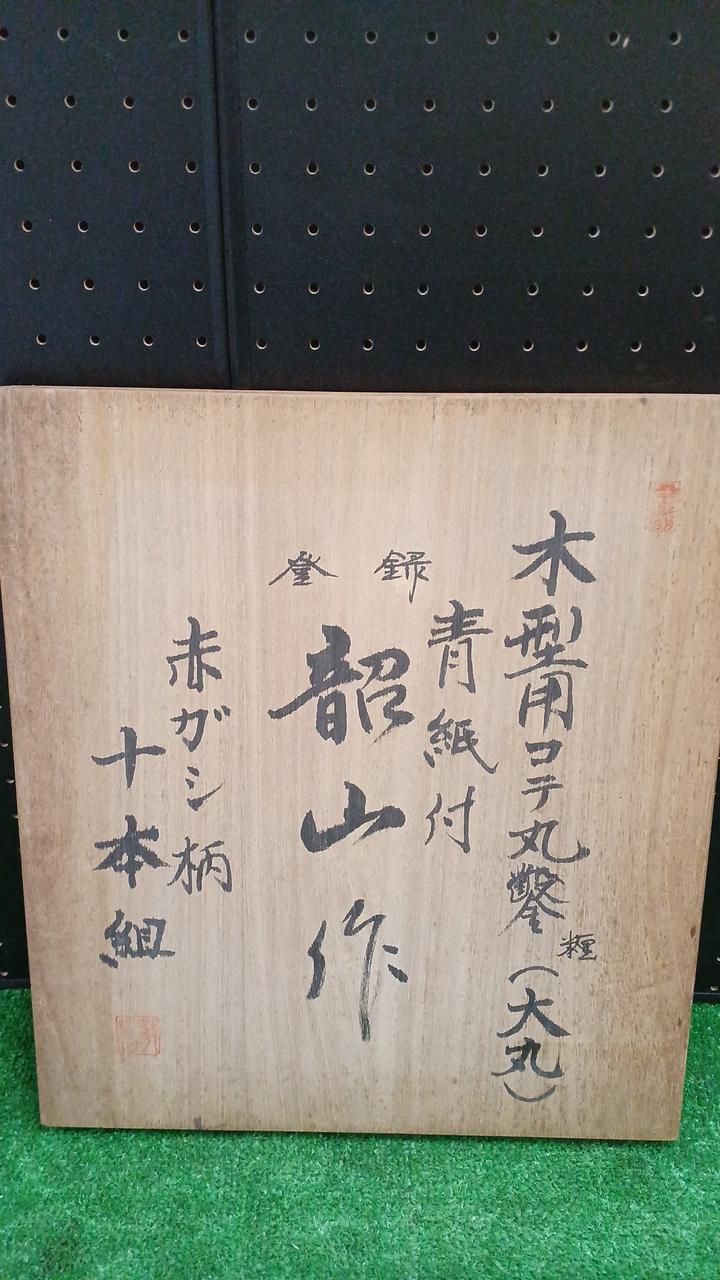 木型用コテ丸鑿(大丸)
青紙付
登録
韶山作
赤ガシ柄
十本組